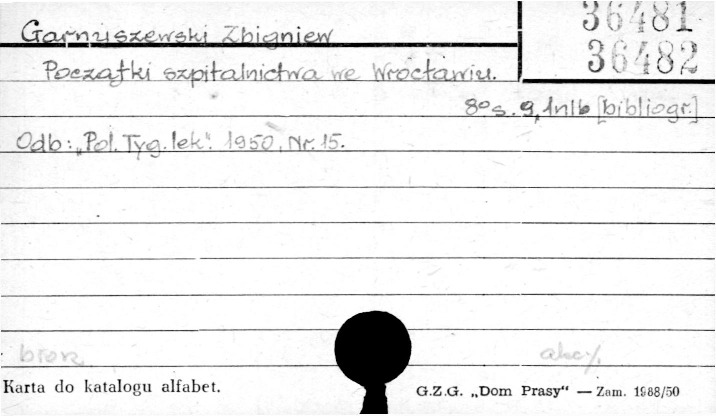 Garnuszewski Zbigniew
36481
36482
Początki szpitalnictwa we Wrocławiu.
8o s. 9, 1nlb [bibliogr.]
Odb: „Pol. Tyg. lek". 1950, Nr. 15.
Karta do katalogu alfabet.
G.Z.G. „Dom Prasy“ — Zam. 1988/50